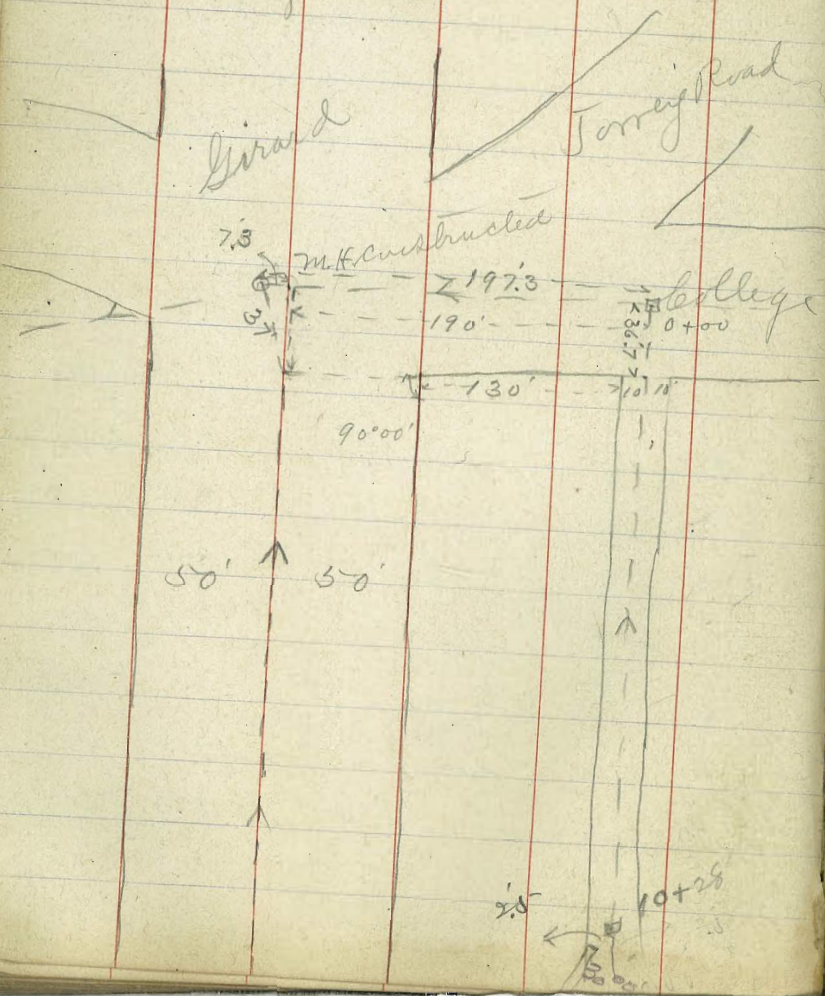 Girard
Torrey Road
7.3
M.H. Constructed
197.3
College
190'
0+00
36.7
130'
10' 10'
90°00'
50' 50'
2.5'
10+28